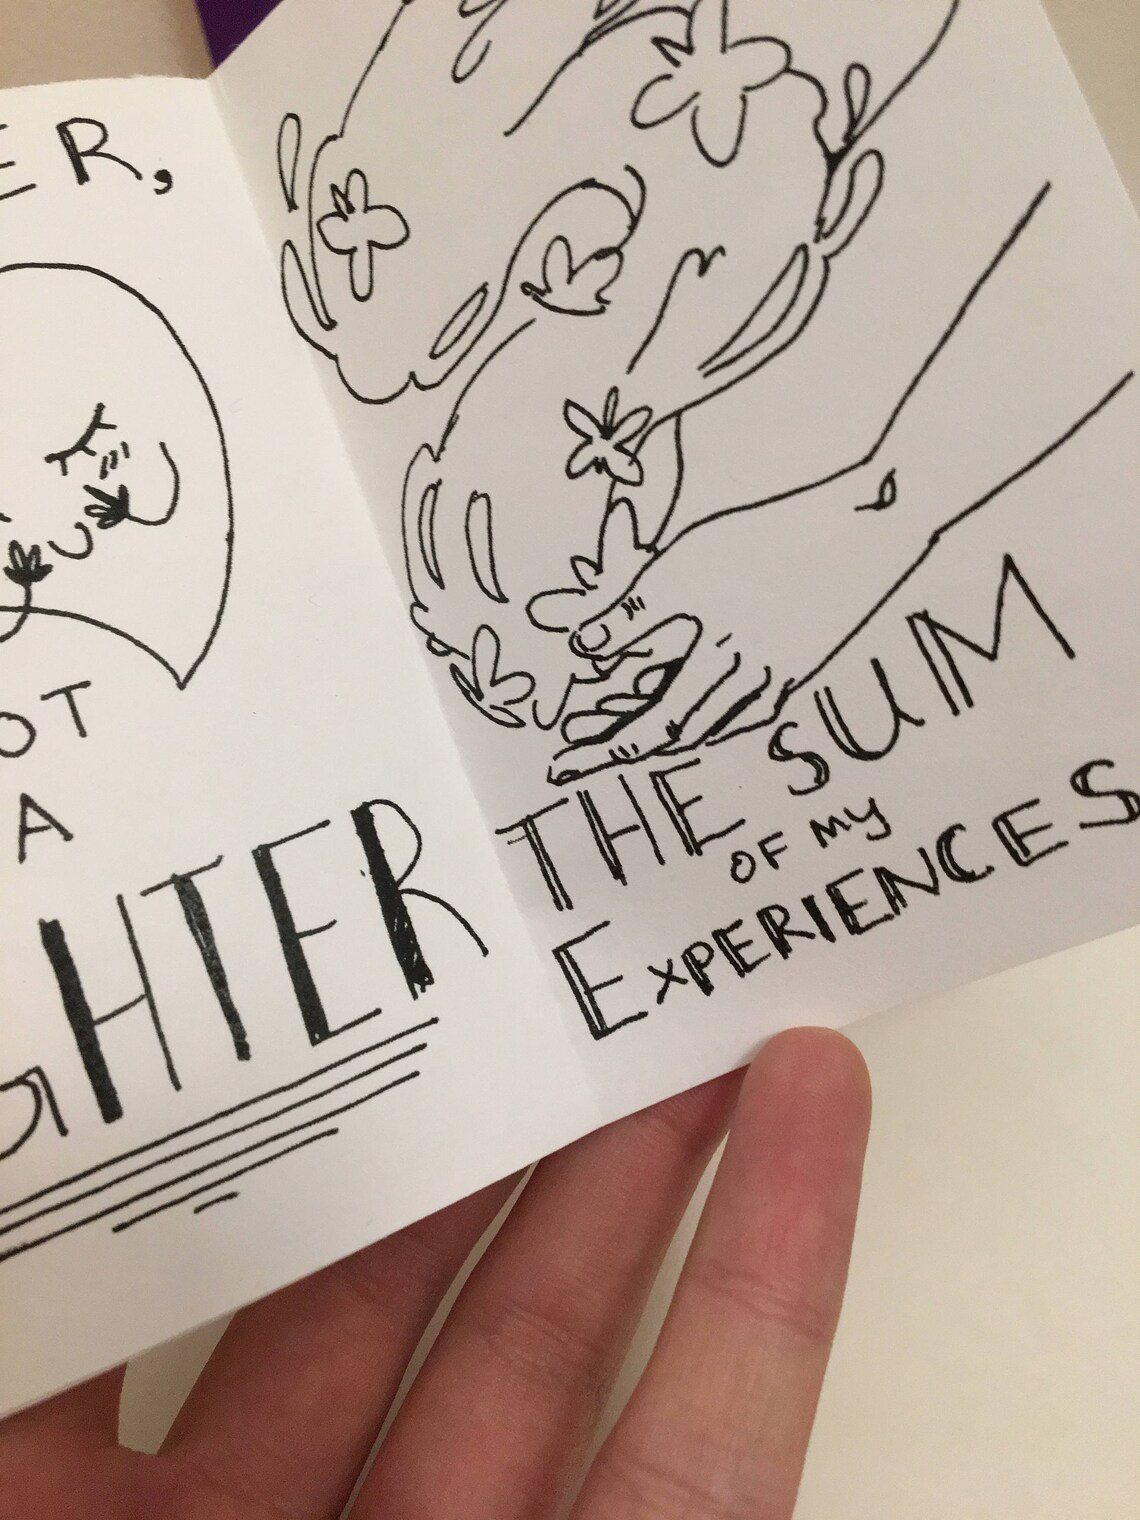 ER,
OT
A
GHTER
THE SUM
OF MY
EXPERIENCES